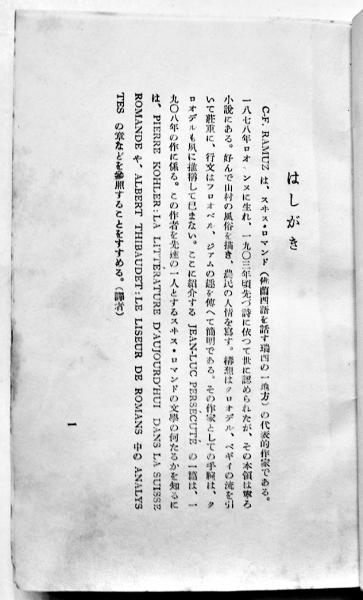 はしがき
C-F. RAMUZ は、スヰス・ロマンド（佛蘭西語を話す瑞西の一地方）の代表的作家である。
一八七八年ロオザンヌに生れ、一九〇三年頃先づ詩に依つて世に認められたが、その本領は寧ろ
小説にある。好んで山村の風俗を描き、農民の人情を寫す。構想はクロオデル、ペギイの流を引
いて莊重に、行文はフロオベル、ジァムの趣を傳へて簡明である。その作家としての手腕は、ク
ロオデルも夙に推稱して已まない。ここに紹介する JEAN-LUC PERSECUTÉ の一篇は、一
九〇八年の作に係る。この作者を先達の一人とするスヰス・ロマンドの文學の何たるかを知るに
は、PIERRE KOHLER: LA LITTÉRATURE D'AUJOURD'HUI DANS LA SUISSE
ROMANDE や、ALBERT THIBAUDET: LE LISEUR DE ROMANS 中の ANALYS
TES の章などを參照することをすすめる。（譯者）
1